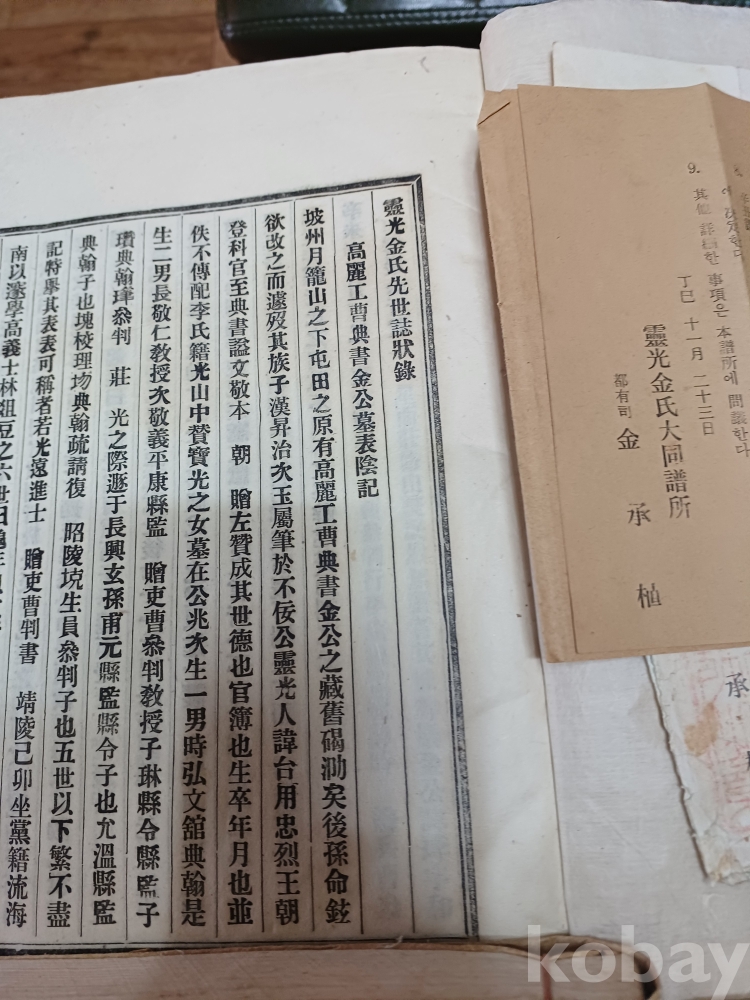 靈光金氏先世誌狀錄
高麗工曹典書金公墓表陰記
坡州月籠山之下屯田之原有高麗工曹典書金公之藏舊碣泐矣後孫命鉉
欲改之而遽歿其族子漢昇治次玉屬筆於不佞公靈光人諱台用忠烈王朝
登科官至典書謚文敬本 朝 贈左贊成其世德也官簿也生卒年月也並
佚不傳配李氏籍光山中贊寶光之女墓在公兆次生一男時弘文舘典翰是
生二男長敬仁敎授次敬義平康縣監 贈吏曹叅判敎授子琳縣令縣監子
瓚典翰琫叅判 莊 光之際遯于長興玄孫甫元縣監縣令子也允溫縣監
典翰子也塊校理坊典翰疏請復 昭陵垸生員叅判子也五世以下繁不盡
記特擧其表表可稱者若光遠進士 贈吏曹判書 靖陵己卯坐黨籍流海
南以邃學高義士林俎豆之六世曰
에 決定한다
9. 其他 詳細한 事項은 本譜所에 問議한다
丁巳 十一月 二十三日
靈光金氏大同譜所
都有司 金 承 植
承
kobay